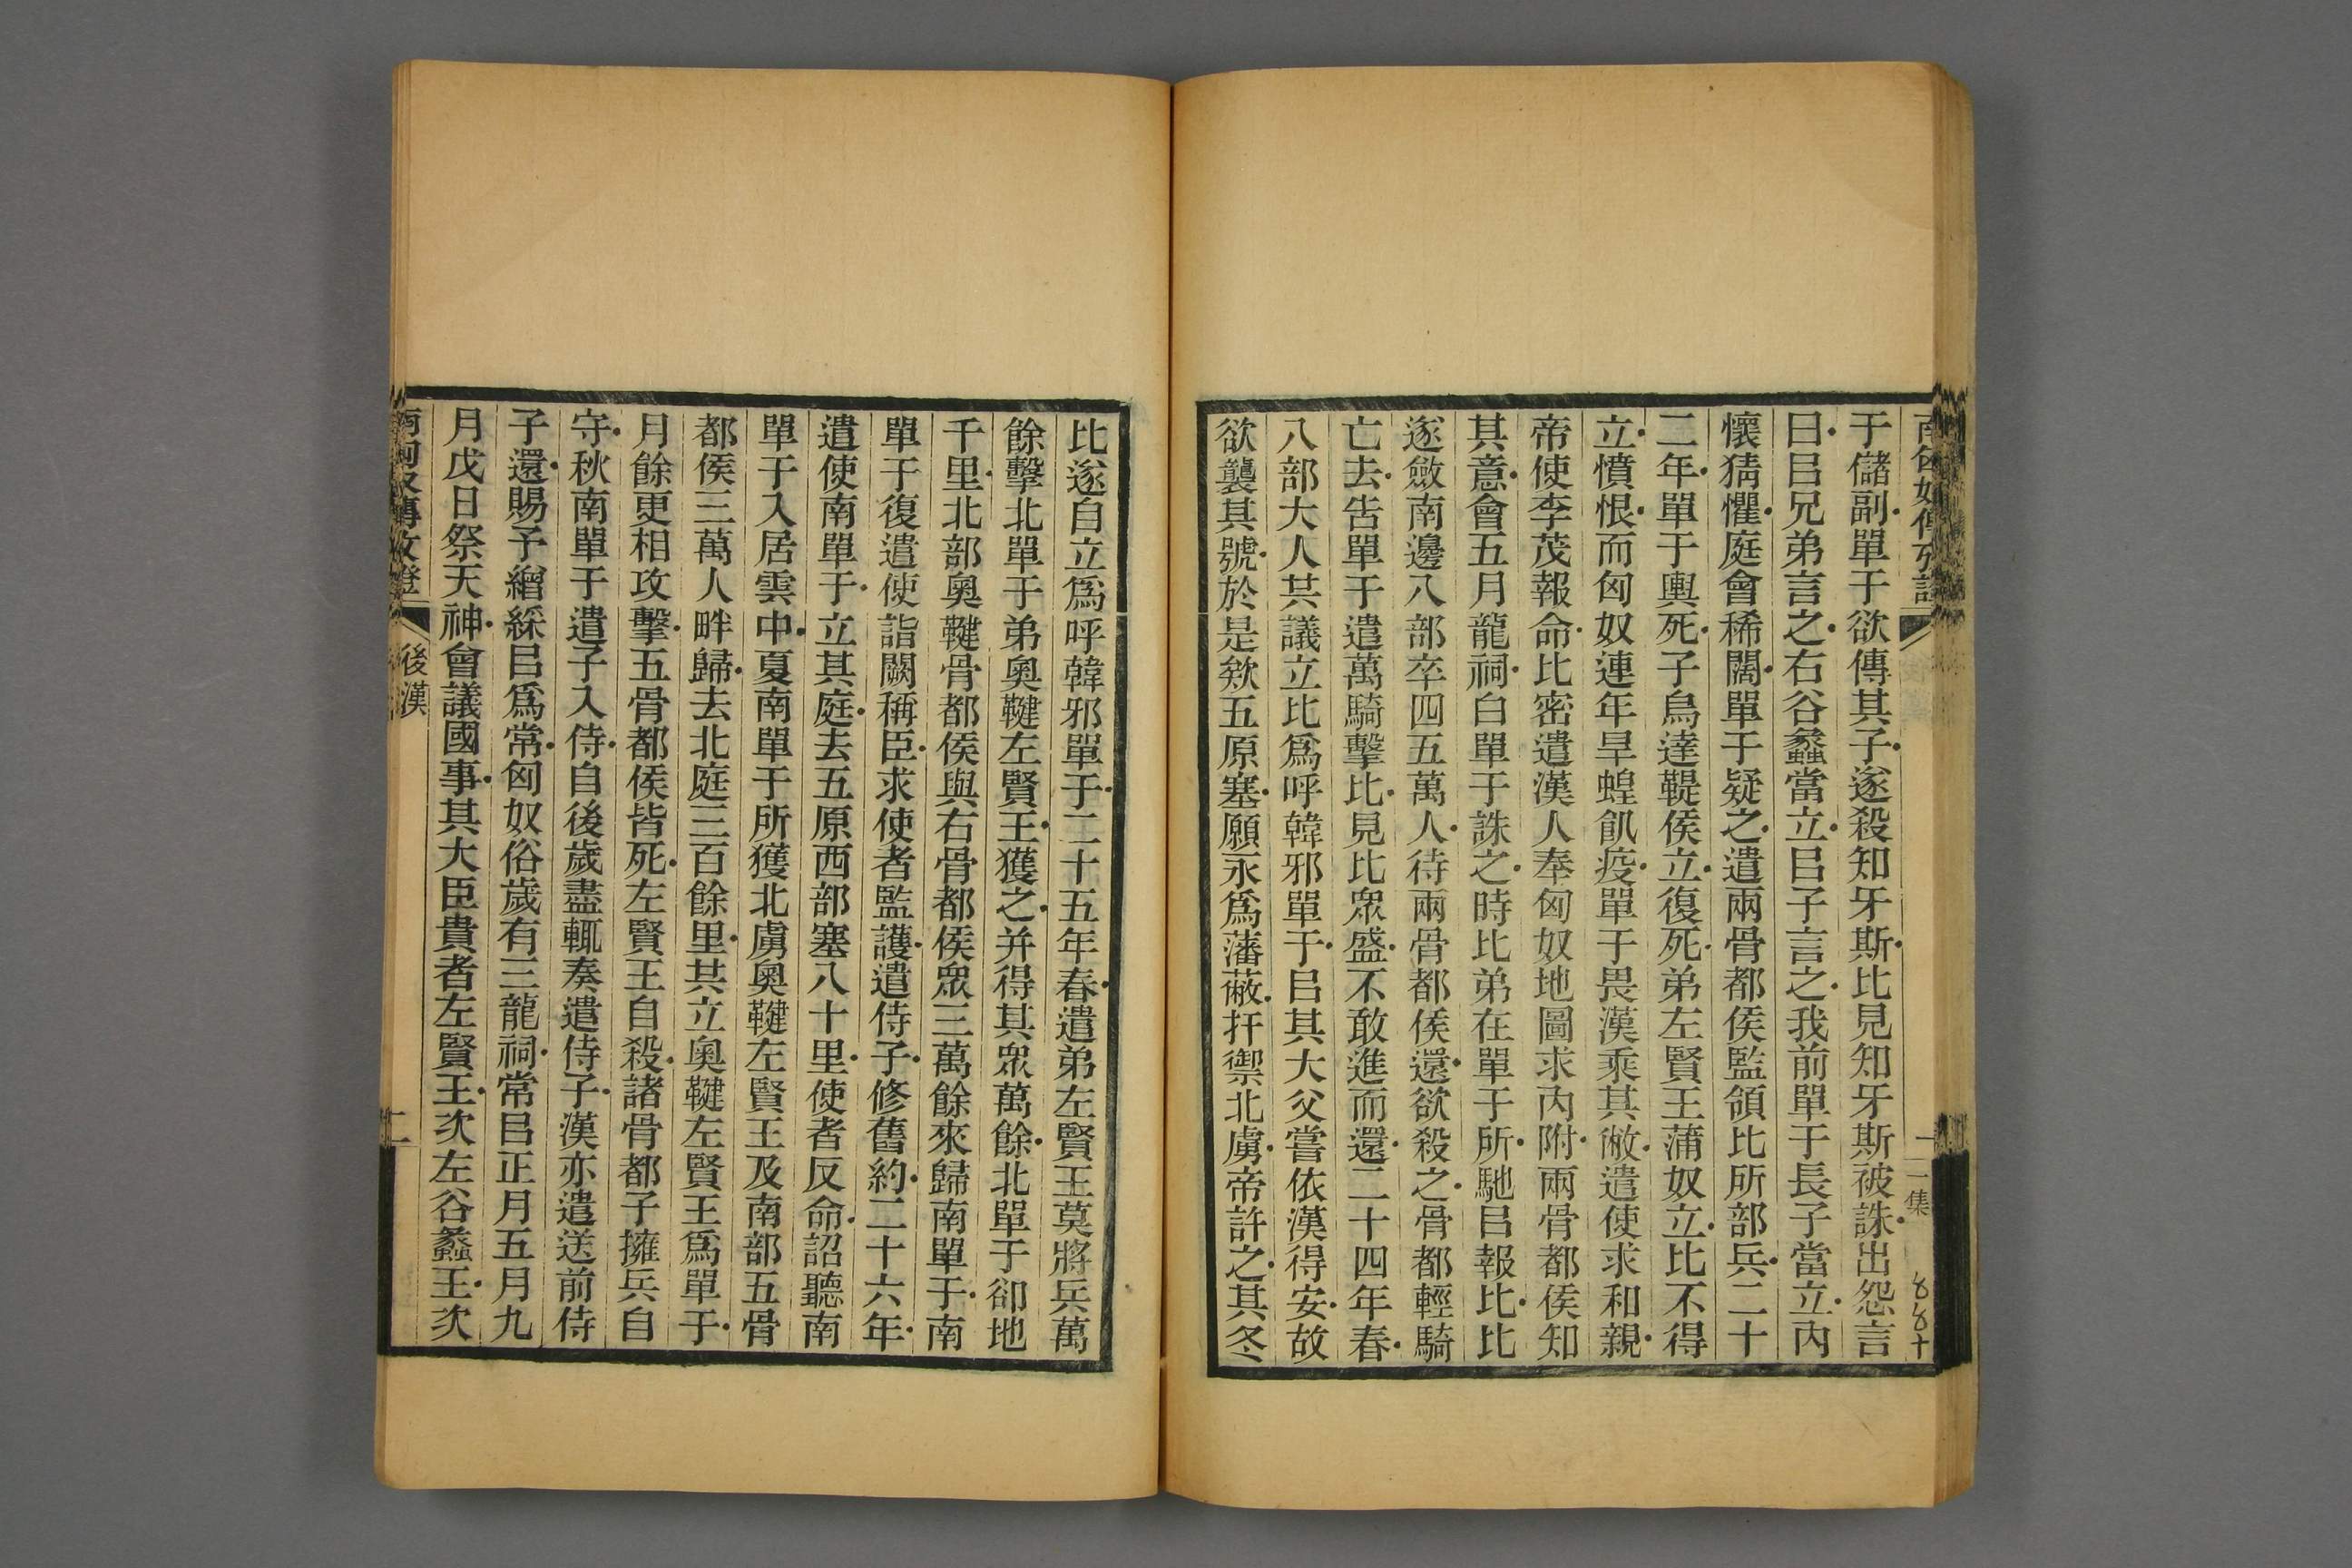 于儲副單于欲傳其子遂殺知牙斯比見知牙斯被誅出怨言
曰㠯兄弟言之右谷蠡當立㠯子言之我前單于長子當立內
懷猜懼庭會稀闊單于疑之遣兩骨都侯監領比所部兵二十
二年單于輿死子烏達鞮侯立復死弟左賢王蒲奴立比不得
立憤恨而匈奴連年旱蝗飢疫單于畏漢乘其敝遣使求和親
帝使李茂報命比密遣漢人奉匈奴地圖求內附兩骨都侯知
其意會五月龍祠白單于誅之時比弟在單于所馳㠯報比比
遂斂南邊八部卒四五萬人待兩骨都侯還欲殺之骨都輕騎
亡去告單于遣萬騎擊比見比眾盛不敢進而還二十四年春
八部大人共議立比爲呼韓邪單于㠯其大父嘗依漢得安故
欲襲其號於是欵五原塞願永爲藩蔽扞禦北虜帝許之其冬
比遂自立爲呼韓邪單于二十五年春遣弟左賢王莫將兵萬
餘擊北單于弟奧鞬左賢王獲之并得其眾萬餘北單于卻地
千里北部奧鞬骨都侯與右骨都侯眾三萬餘來歸南單于南
單于復遣使詣闕稱臣求使者監護遣侍子修舊約二十六年
遣使南單于立其庭去五原西部塞八十里使者反命詔聽南
單于入居雲中夏南單于所獲北虜奧鞬左賢王及南部五骨
都侯三萬人畔歸去北庭三百餘里共立奧鞬左賢王爲單于
月餘更相攻擊五骨都侯皆死左賢王自殺諸骨都子擁兵自
守秋南單于遣子入侍自後歲盡輒奏遣侍子漢亦遣送前侍
子還賜予繒綵㠯爲常匈奴俗歲有三龍祠常㠯正月五月九
月戊日祭天神會議國事其大臣貴者左賢王次左谷蠡王次
後漢
二